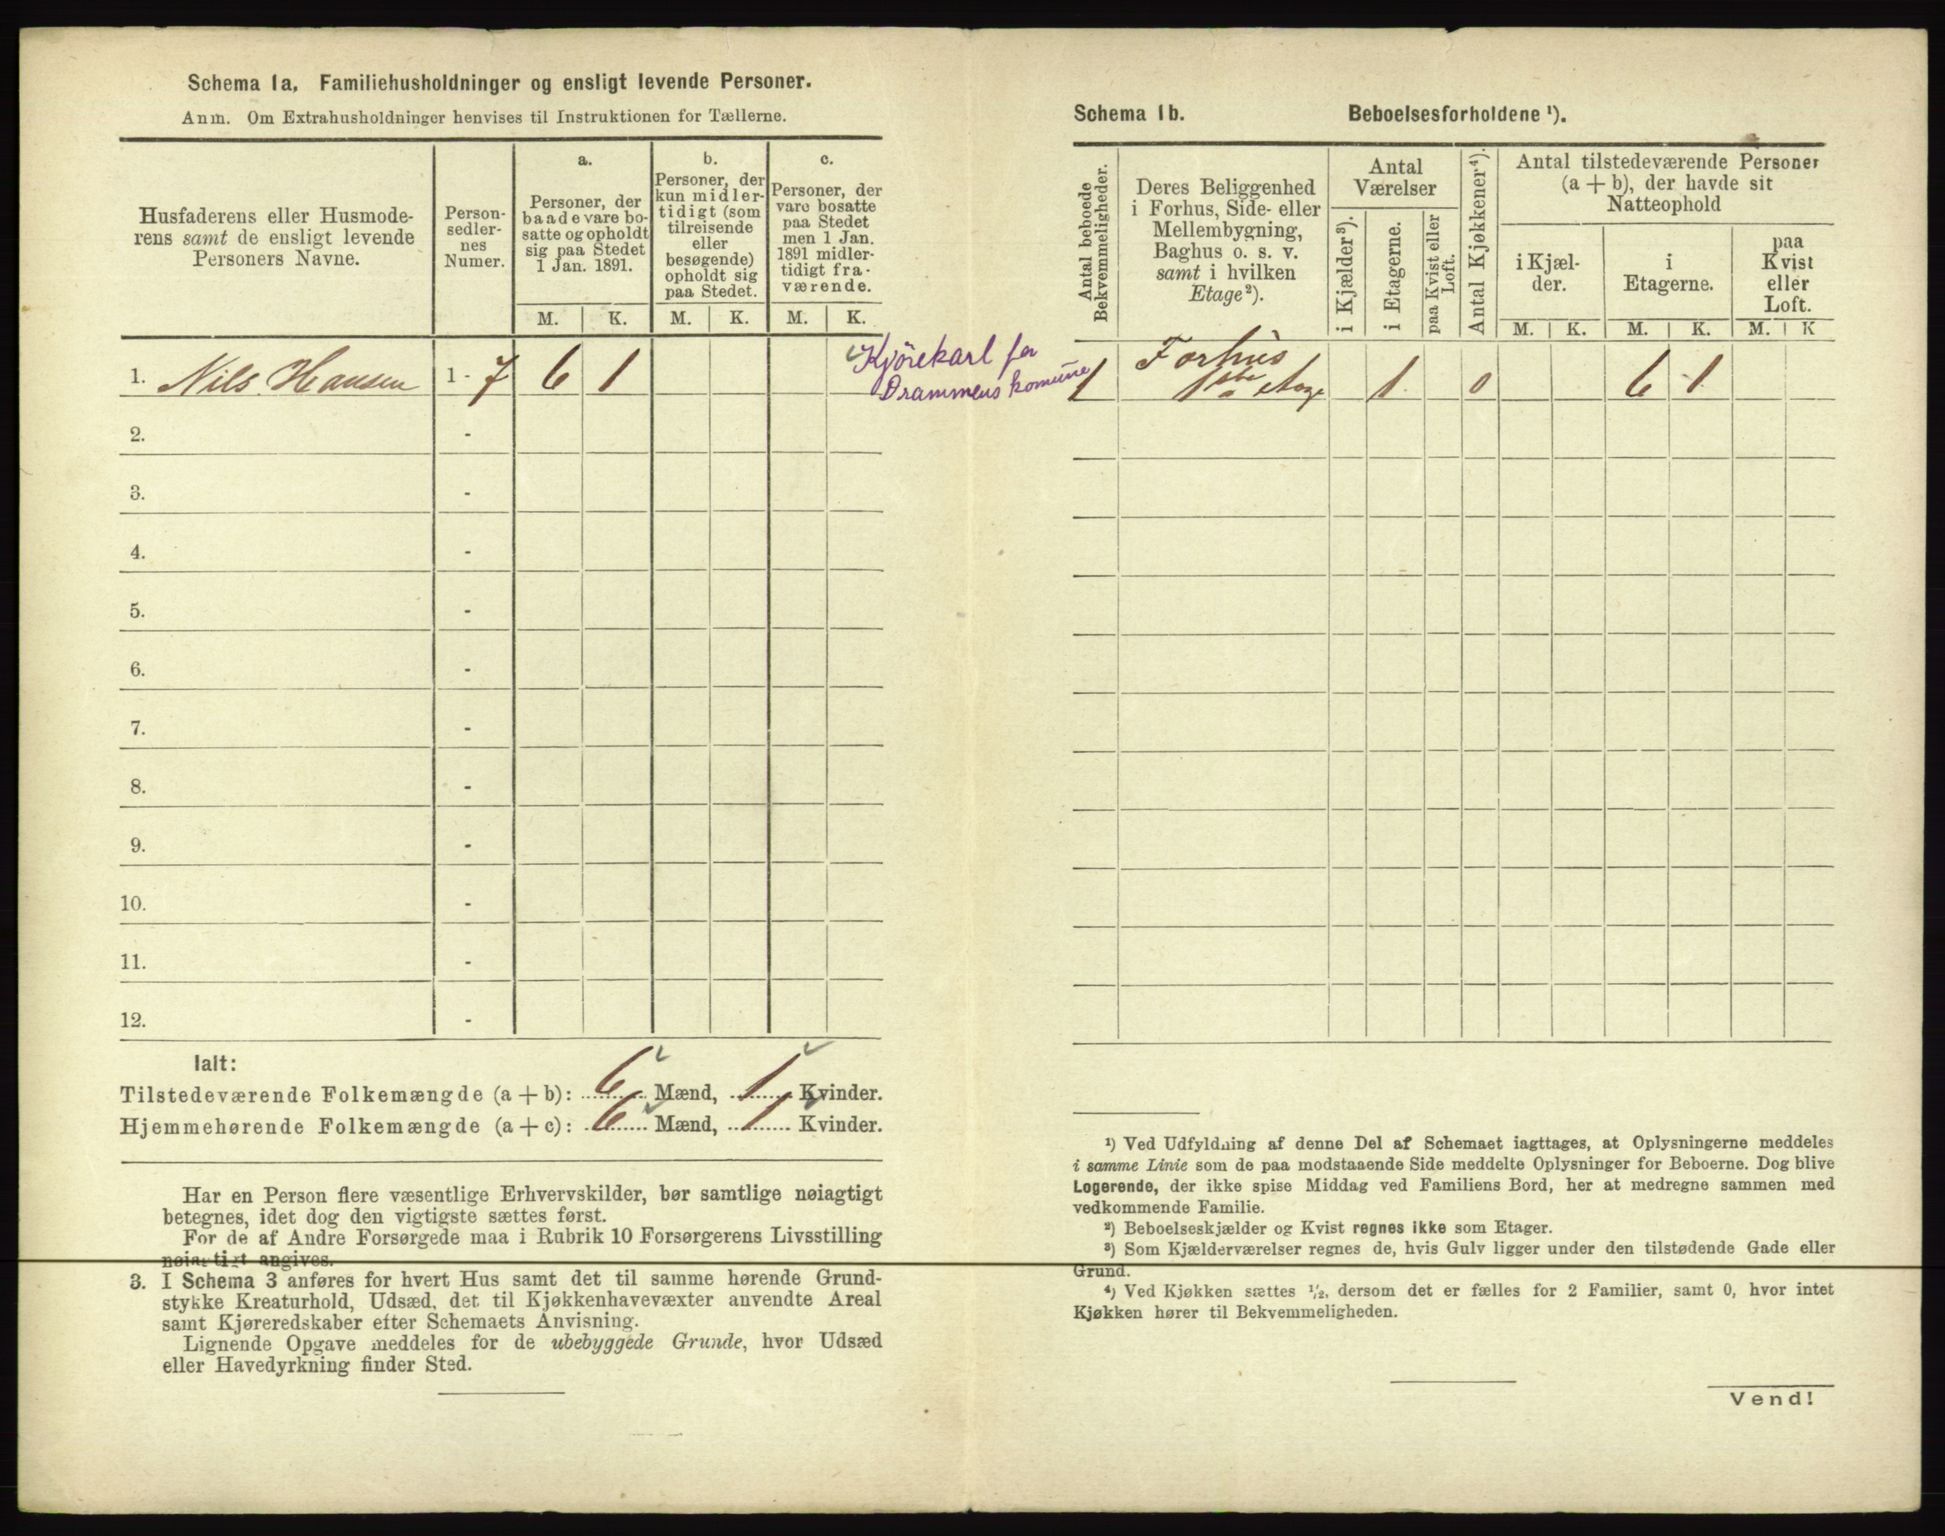 Schema 1a. Familiehusholdninger og ensligt levende Personer.
Anm. Om Extrahusholdninger henvises til Instruktionen for Tællerne.
Husfaderens eller Husmode-
rens samt de ensligt levende
Personers Navne.
Person-
sedler-
nes
Numer.
a.
Personer, der
baade vare bo-
satte og opholdt
sig paa Stedet
1 Jan. 1891.
b.
Personer, der
kun midler-
tidigt (som
tilreisende
eller
besøgende)
opholdt sig
paa Stedet.
c.
Personer, der
vare bosatte
paa Stedet
men 1 Jan.
1891 midler-
tidigt fra-
værende.
M. K. M. K. M. K.
1. Nils Hansen 1 - 7 6 1
Kjörekarl for
Drammens komune
2. -
3. -
4. -
5. -
6. -
7. -
8. -
9. -
10. -
11. -
12. -
Ialt:
Tilstedeværende Folkemængde (a + b): 6 Mænd, 1 Kvinder.
Hjemmehørende Folkemængde (a + c): 6 Mænd, 1 Kvinder.
Har en Person flere væsentlige Erhvervskilder, bør samtlige nøiagtigt
betegnes, idet dog den vigtigste sættes først.
For de af Andre Forsørgede maa i Rubrik 10 Forsørgerens Livsstilling
nøiagtigt angives.
3. I Schema 3 anføres for hvert Hus samt det til samme hørende Grund-
stykke Kreaturhold, Udsæd, det til Kjøkkenhavevæxter anvendte Areal
samt Kjøreredskaber efter Schemaets Anvisning.
Lignende Opgave meddeles for de ubebyggede Grunde, hvor Udsæd
eller Havedyrkning finder Sted.
Schema 1b. Beboelsesforholdene ¹).
Antal beboede
Bekvemmeligheder.
Deres Beliggenhed
i Forhus, Side- eller
Mellembygning,
Baghus o. s. v.
samt i hvilken
Etage²).
Antal
Værelser
i Kjælder³).
i Etagerne.
paa Kvist eller
Loft.
Antal Kjøkkener⁴).
Antal tilstedeværende Personer
(a + b), der havde sit
Natteophold
i Kjæl-
der.
i
Etagerne.
paa
Kvist
eller
Loft.
M. K. M. K. M. K
1 Forhus
1ste Etage 1 0 6 1
¹) Ved Udfyldning af denne Del af Schemaet iagttages, at Oplysningerne meddeles
i samme Linie som de paa modstaaende Side meddelte Oplysninger for Beboerne. Dog blive
Logerende, der ikke spise Middag ved Familiens Bord, her at medregne sammen med
vedkommende Familie.
²) Beboelseskjælder og Kvist regnes ikke som Etager.
³) Som Kjælderværelser regnes de, hvis Gulv ligger under den tilstødende Gade eller
Grund.
⁴) Ved Kjøkken sættes ½, dersom det er fælles for 2 Familier, samt 0, hvor intet
Kjøkken hører til Bekvemmeligheden.
Vend!